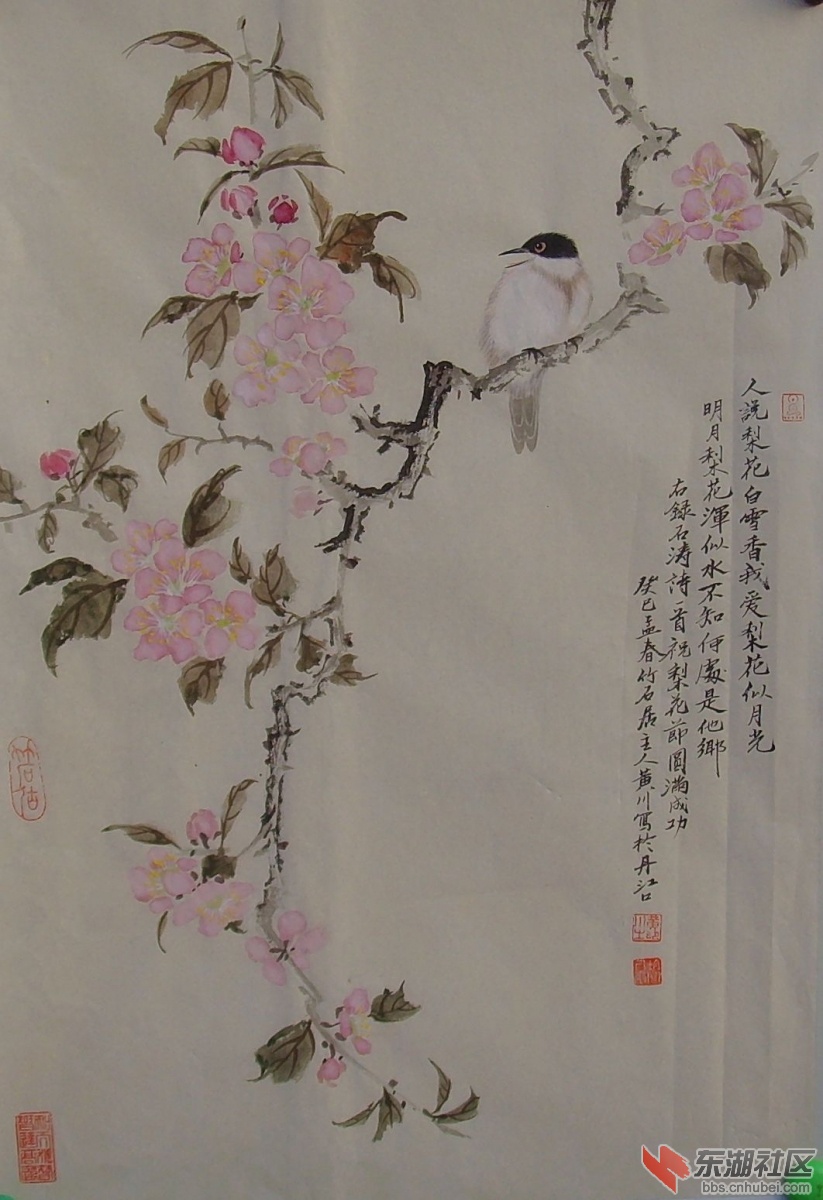 人説梨花白雪香我爱梨花似月光
明月梨花渾似水不知何處是他鄉
右録石涛詩一首祝梨花節圆满成功
癸巳孟春竹石居主人黄川寫於丹江口
东湖社区
bbs.cnhubei.com